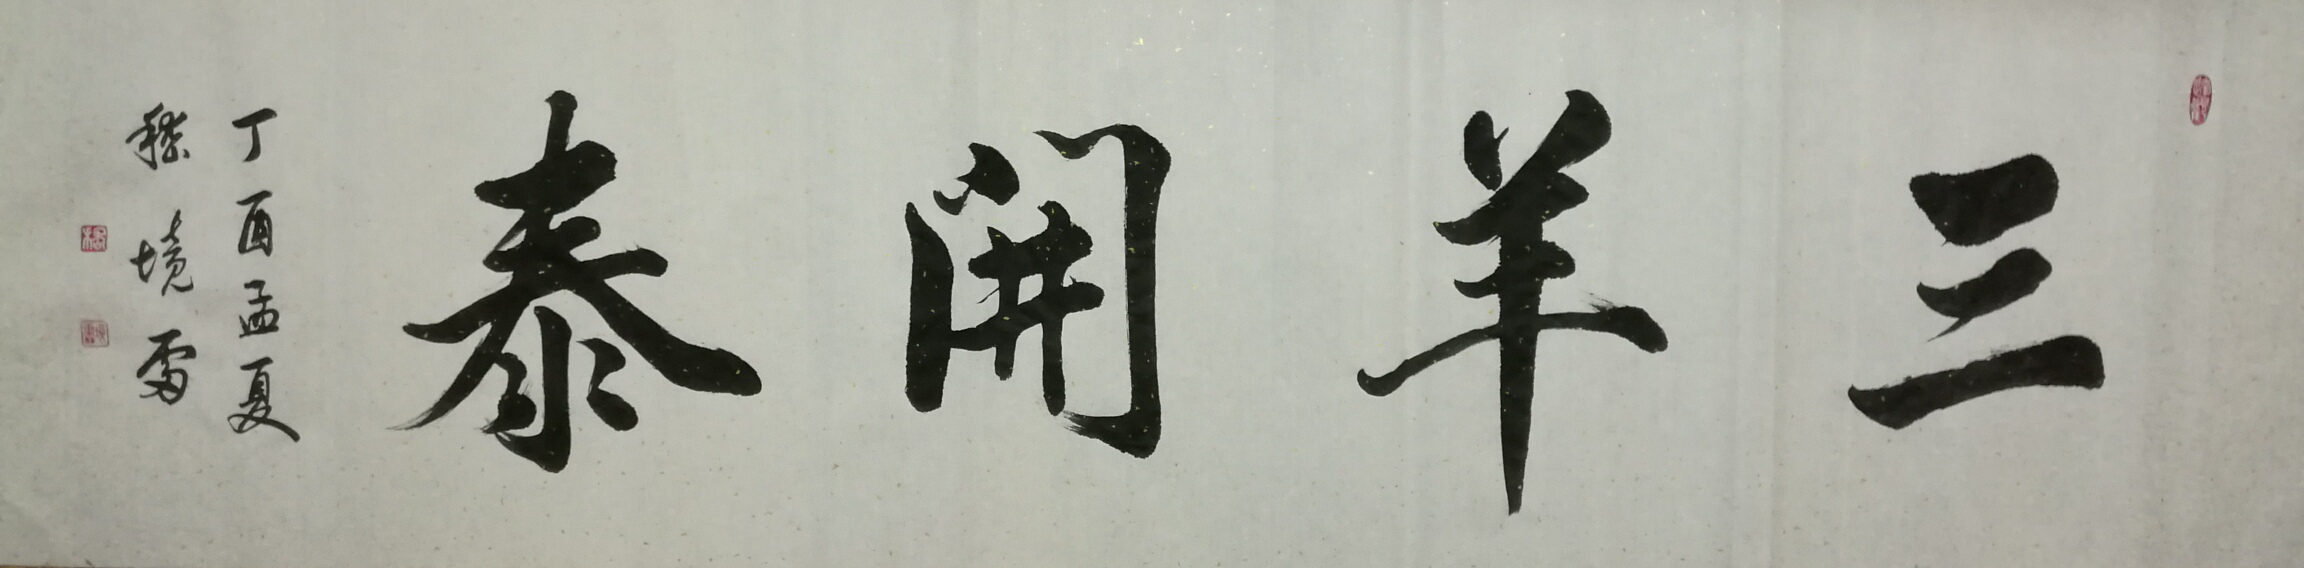 三羊開泰
丁酉孟夏
嵇境雷